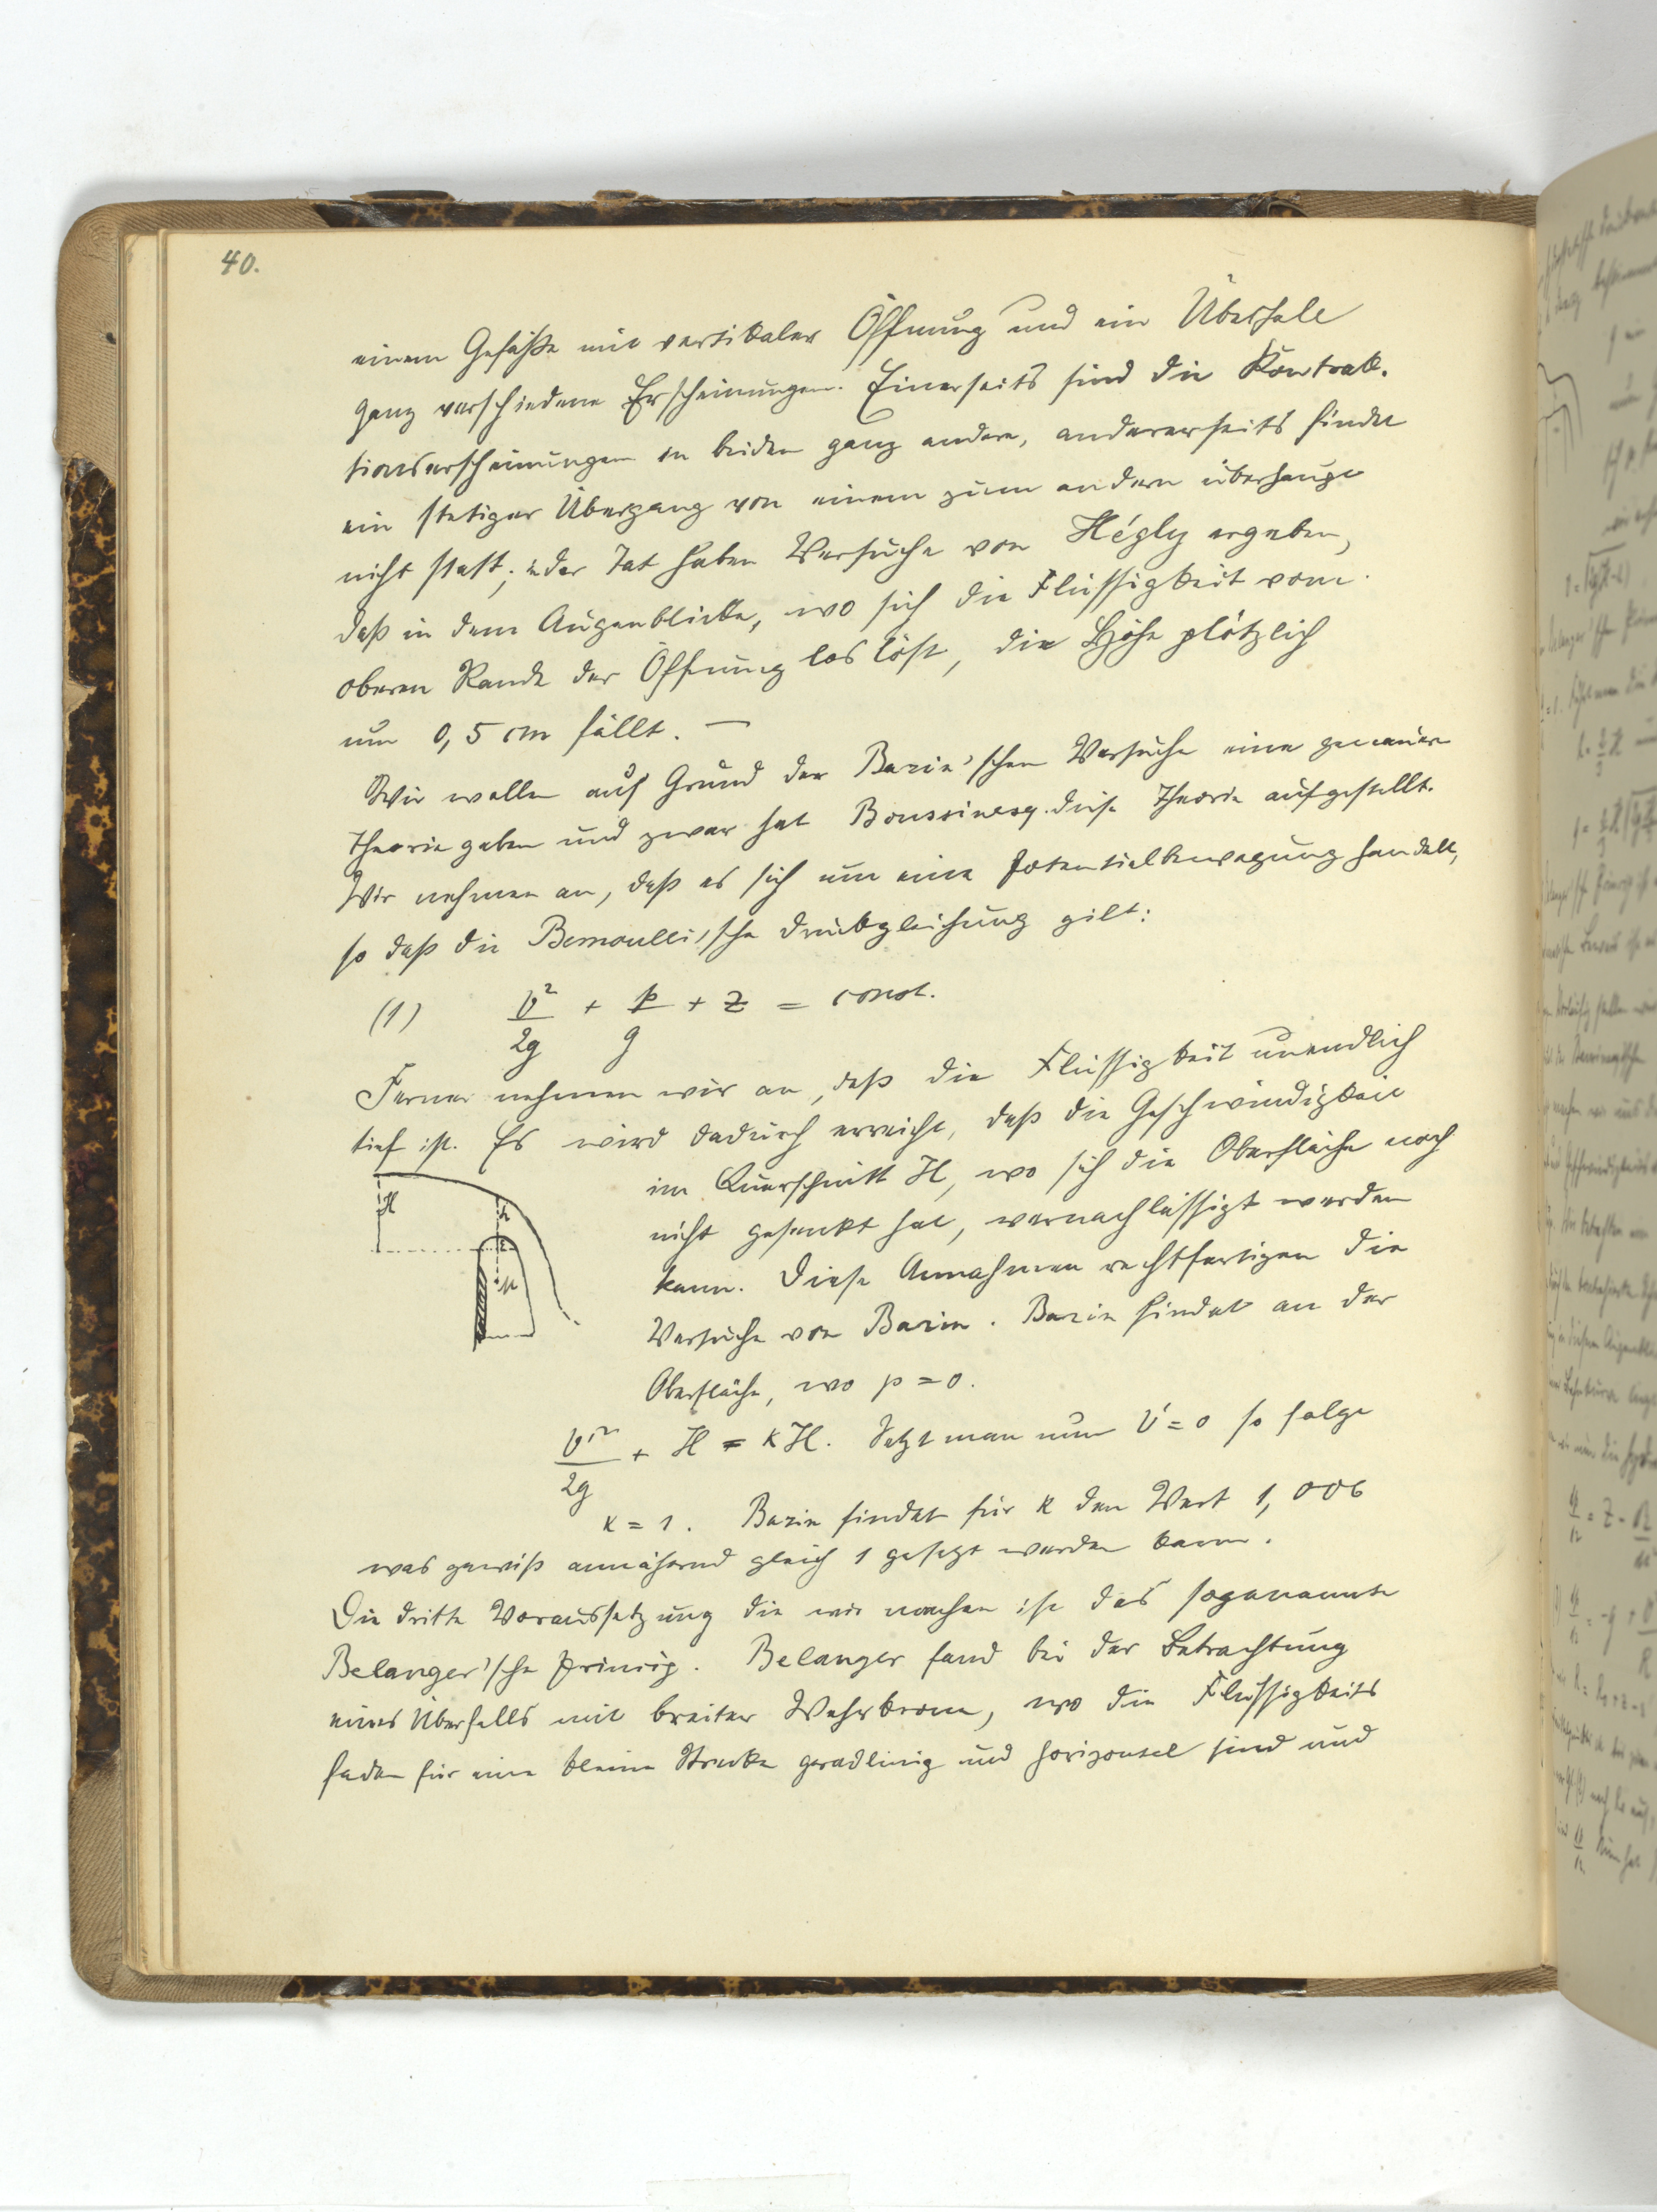 40.
einem Gefäße mit vertikaler Öffnung und ein Überfall
ganz verschiedene Erscheinungen. Einerseits sind die Kontrak-
tionserscheinungen in beiden ganz andere, andererseits findet
ein stetiger Übergang von einem zum andern überhaupt
nicht statt; in der Tat haben Versuche von Hégly ergeben,
daß in dem Augenblicke, wo sich die Flüssigkeit vom
oberen Rande der Öffnung los löst, die Höhe plötzlich
um 0,5 cm fällt. —
Wir wollen auf Grund der Bazin'schen Versuche eine genauere
Theorie geben und zwar hat Boussinesq diese Theorie aufgestellt.
Wir nehmen an, daß es sich um eine Potentialbewegung handelt,
so daß die Bernoulli'sche Druckgleichung gilt:
(1) v²/2g + p/g + z = const.
Ferner nehmen wir an, daß die Flüssigkeit unendlich
tief ist. Es wird dadurch erreicht, daß die Geschwindigkeit
im Querschnitt H, wo sich die Oberfläche noch
nicht gesenkt hat, vernachlässigt werden
kann. Diese Annahmen rechtfertigen die
Versuche von Bazin. Bazin findet an der
Oberfläche, wo p = 0.
v'²/2g + H = κH. Setzt man nun v' = 0 so folgt
κ = 1. Bazin findet für κ den Wert 1,006
was gewiß annähernd gleich 1 gesetzt werden kann.
Die dritte Voraussetzung die wir machen ist das sogenannte
Belanger'sche Prinzip. Belanger fand bei der Betrachtung
eines Überfalls mit breiter Wehrkrone, wo die Flüssigkeits
faden für eine kleine Strecke geradlinig und horizontal sind und
H
h
ε